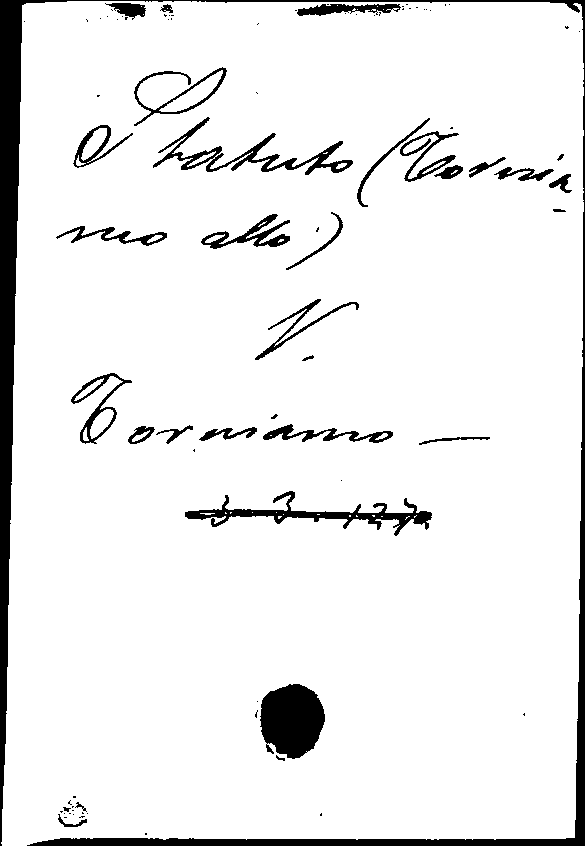 Statuto (Tornia-
mo allo)
V.
Torniamo —
3 3. 127